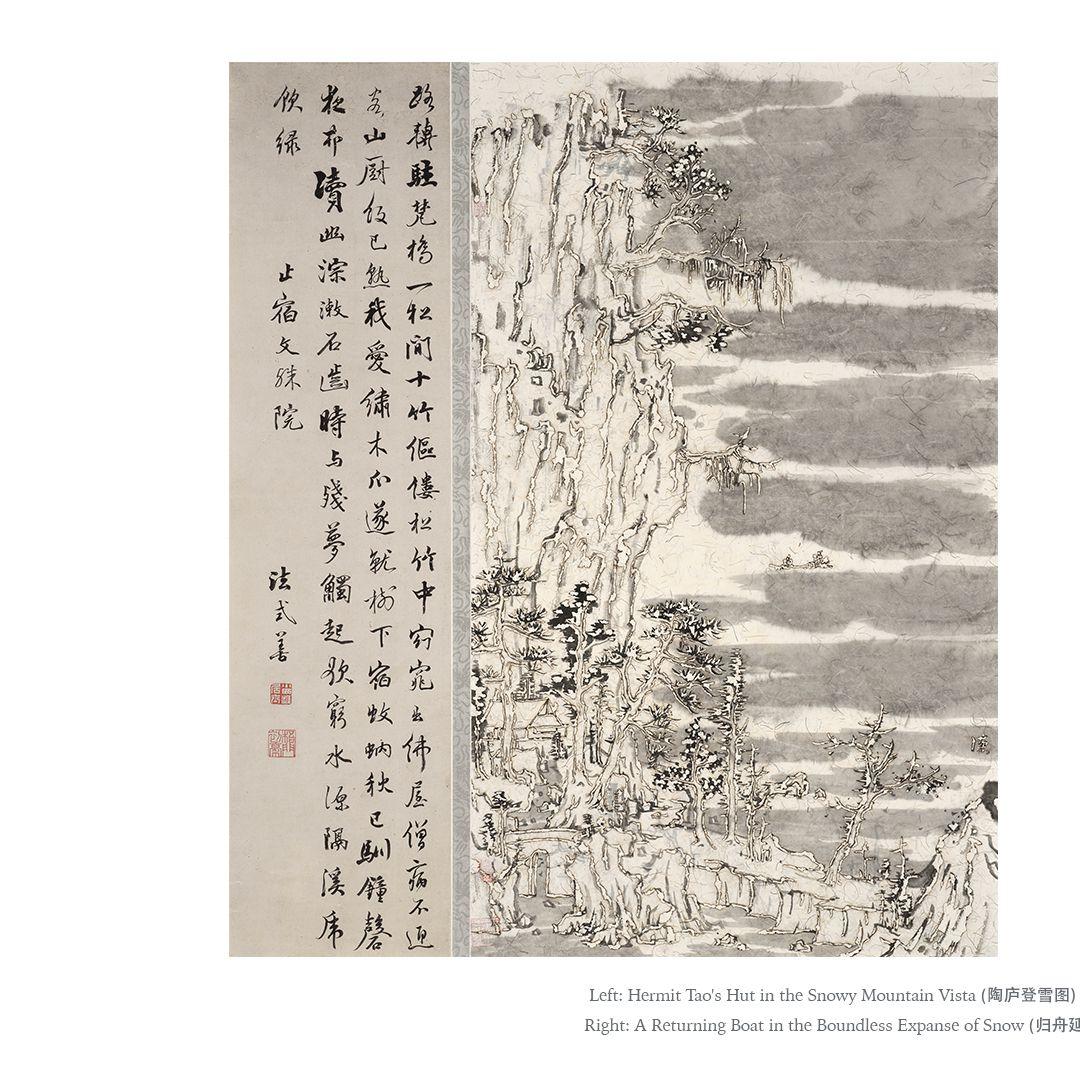 路轉駐橋一松間十竹傴僂松竹中窈窕出佛屋僧病不迎
客山厨飯已熟我愛繡木瓜遂就樹下宿蚊蚋秋已馴鐘磬
夜瀆幽淙漱石齒時与殘夢觸起欲窮水源隔溪虎
飲緑
止宿文殊院
法式善
Left: Hermit Tao's Hut in the Snowy Mountain Vista (陶庐登雪图)
Right: A Returning Boat in the Boundless Expanse of Snow (归舟延